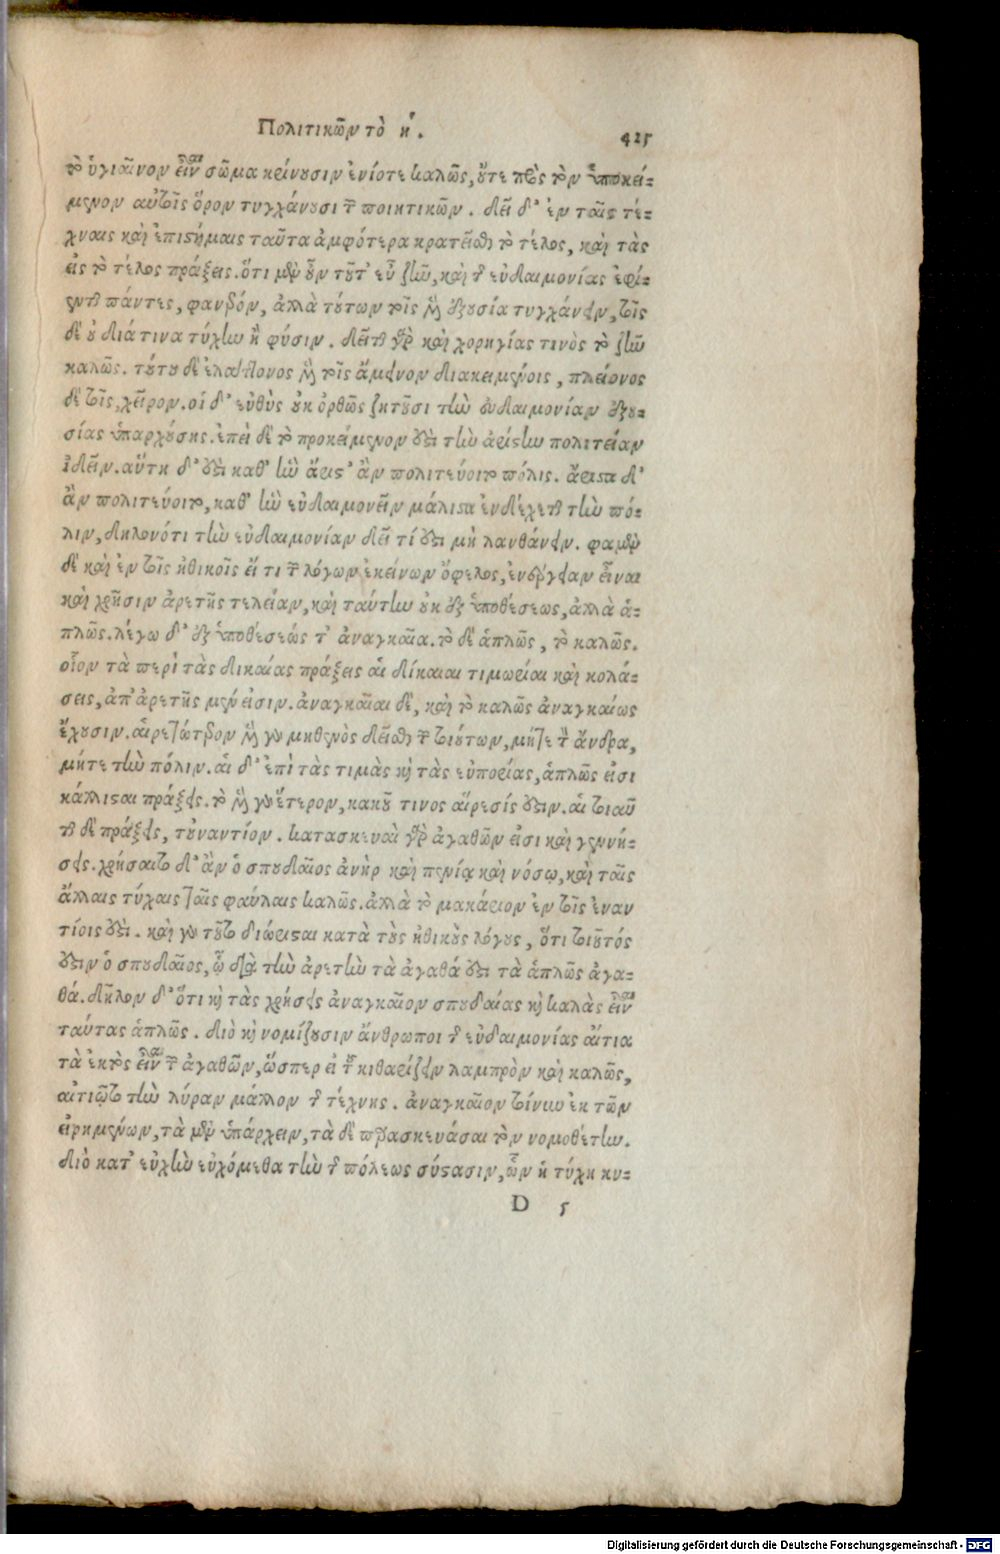 Πολιτικῶν τὸ η΄.
425
τὸ ὑγιαῖνον εἶναι σῶμα κρίνουσιν ἐνίοτε καλῶς, οὔτε πρὸς τὸν ὑποκεί-
μενον αὐτοῖς ὅρον τυγχάνουσι τῶν ποιητικῶν. δεῖ δ' ἐν ταῖς τέ-
χναις καὶ ἐπιστήμαις ταῦτα ἀμφότερα κρατεῖσθαι τὸ τέλος, καὶ τὰς
εἰς τὸ τέλος πράξεις. ὅτι μὲν οὖν τοῦτ' εὖ ζῶ, καὶ τῆς εὐδαιμονίας ἐφί-
ενται πάντες, φανερόν, ἀλλὰ τούτων τοῖς μὲν ἐξουσία τυγχάνειν, τοῖς
δὲ οὐ διά τινα τύχην ἢ φύσιν. δεῖται γὰρ καὶ χορηγίας τινὸς τὸ ζῶ
καλῶς. τούτου δὲ ἐλάττονος μὲν τοῖς ἄμεινον διακειμένοις, πλείονος
δὲ τοῖς, χεῖρον. οἱ δ' εὐθὺς οὐκ ὀρθῶς ζητοῦσι τὴν εὐδαιμονίαν ἐξου-
σίας ὑπαρχούσης. ἐπεὶ δὲ τὸ προκείμενον ἐστὶ τὴν ἀρίστην πολιτείαν
ἰδεῖν. αὕτη δ' ἐστὶ καθ' ἣν ἄριστ' ἂν πολιτεύοιτο πόλις. ἄριστα δ'
ἂν πολιτεύοιτο, καθ' ἣν εὐδαιμονεῖν μάλιστα ἐνδέχεται τὴν πό-
λιν, δηλονότι τὴν εὐδαιμονίαν δεῖ τί ἐστι μὴ λανθάνειν. φαμὲν
δὲ καὶ ἐν τοῖς ἠθικοῖς εἴ τι τῶν λόγων ἐκείνων ὄφελος, ἐνέργειαν εἶναι
καὶ χρῆσιν ἀρετῆς τελείαν, καὶ ταύτην οὐκ ἐξ ὑποθέσεως, ἀλλὰ ἁ-
πλῶς. λέγω δ' ἐξ ὑποθέσεώς τ' ἀναγκαῖα. τὸ δὲ ἁπλῶς, τὸ καλῶς.
οἷον τὰ περὶ τὰς δικαίας πράξεις αἱ δίκαιαι τιμωρίαι καὶ κολά-
σεις, ἀπ' ἀρετῆς μέν εἰσιν. ἀναγκαῖαι δὲ, καὶ τὸ καλῶς ἀναγκαίως
ἔχουσιν. αἱρετώτερον μὲν γὰρ μηθενὸς δεῖσθαι τῶν τοιούτων, μήτε τὸν ἄνδρα,
μήτε τὴν πόλιν. αἱ δ' ἐπὶ τὰς τιμὰς καὶ τὰς εὐπορίας, ἁπλῶς εἰσι
κάλλισται πράξεις. τὸ μὲν γὰρ ἕτερον, κακοῦ τινος αἵρεσίς ἐστιν. αἱ τοιαῦ
ται δὲ πράξεις, τοὐναντίον. κατασκευαὶ γὰρ ἀγαθῶν εἰσι καὶ γεννή-
σεις. χρήσαιτο δ' ἂν ὁ σπουδαῖος ἀνὴρ καὶ πενίᾳ καὶ νόσῳ, καὶ ταῖς
ἄλλαις τύχαις ταῖς φαύλαις καλῶς. ἀλλὰ τὸ μακάριον ἐν τοῖς ἐναν
τίοις ἐστὶ. καὶ γὰρ τοῦτο διώρισται κατὰ τοὺς ἠθικοὺς λόγους, ὅτι τοιοῦτός
ἐστιν ὁ σπουδαῖος, ᾧ διὰ τὴν ἀρετὴν τὰ ἀγαθά ἐστι τὰ ἁπλῶς ἀγα-
θά. δῆλον δ' ὅτι καὶ τὰς χρήσεις ἀναγκαῖον σπουδαίας καὶ καλὰς εἶναι
ταύτας ἁπλῶς. διὸ καὶ νομίζουσιν ἄνθρωποι τῆς εὐδαιμονίας αἴτια
τὰ ἐκτὸς εἶναι τῶν ἀγαθῶν, ὥσπερ εἰ τοῦ κιθαρίζειν λαμπρὸν καὶ καλῶς,
αἰτιῷτο τὴν λύραν μᾶλλον τῆς τέχνης. ἀναγκαῖον τοίνυν ἐκ τῶν
εἰρημένων, τὰ μὲν ὑπάρχειν, τὰ δὲ παρασκευάσαι τὸν νομοθέτην.
διὸ κατ' εὐχὴν εὐχόμεθα τὴν τῆς πόλεως σύστασιν, ὧν ἡ τύχη κυ-
D 5
Digitalisierung gefördert durch die Deutsche Forschungsgemeinschaft - DFG